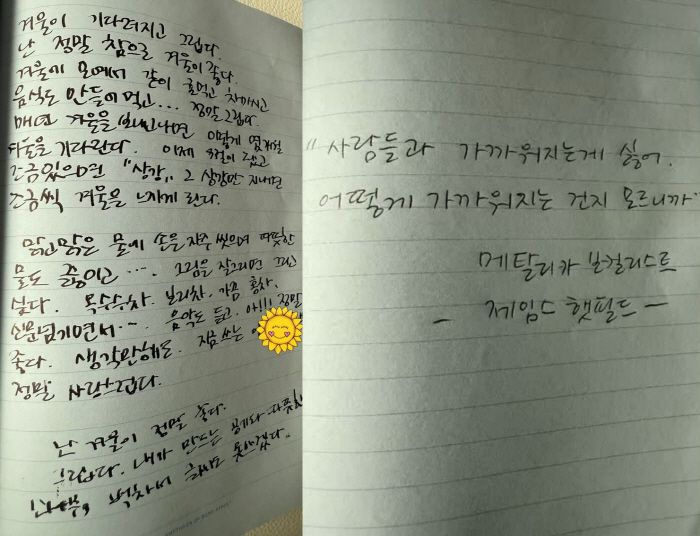 겨울이 기다려지고 그립다.
난 정말 참으로 겨울이 좋다.
겨울에 모여서 같이 굴먹고 차마시고
음식도 만들어 먹고... 정말 그립다.
매년 겨울을 보내고나면 이렇게
겨울을 기다린다. 이제
조금있으면 "상강" 그 상강만 지나면
조금씩 겨울은 느끼게 된다.
맑고맑은 물에 손을 자주 씻으며 따뜻한
물도 좋이고.... 그림을 잘그리면 그리고
싶다. 옥수수차. 보리차. 가끔 홍차.
신문넘기면서... 음악도 듣고. 아!!! 정말
좋다. 생각만해도. 지금 쓰는
정말 사랑스럽다.
난 겨울이 정말 좋다.
그립다. 내가 만드는
벅차서 글씨도 못쓰겠다..
"사람들과 가까워지는게 싫어.
어떻게 가까워지는 건지 모르니까"
메탈리카 보컬리스트
- 제임스 햇필드 -